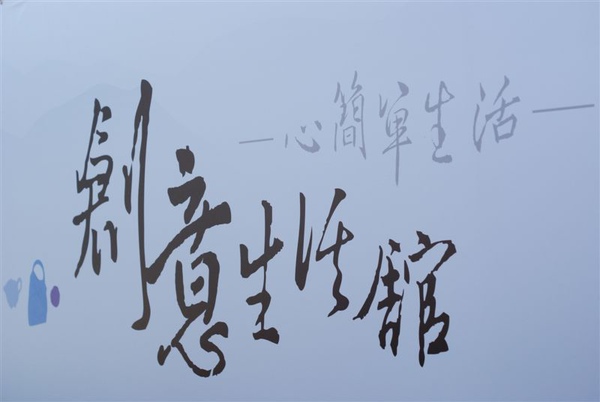 心簡單生活
創意生活館